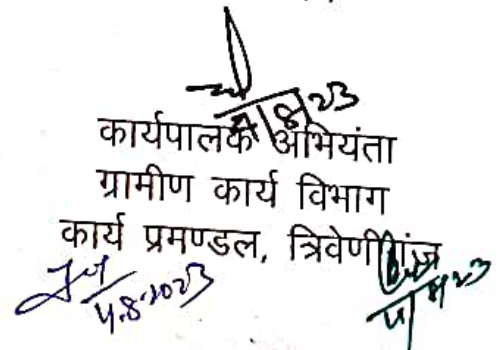 4/8/23
कार्यपालक अभियंता
ग्रामीण कार्य विभाग
कार्य प्रमण्डल, त्रिवेणीगंज
4.8.2023
4/8/23